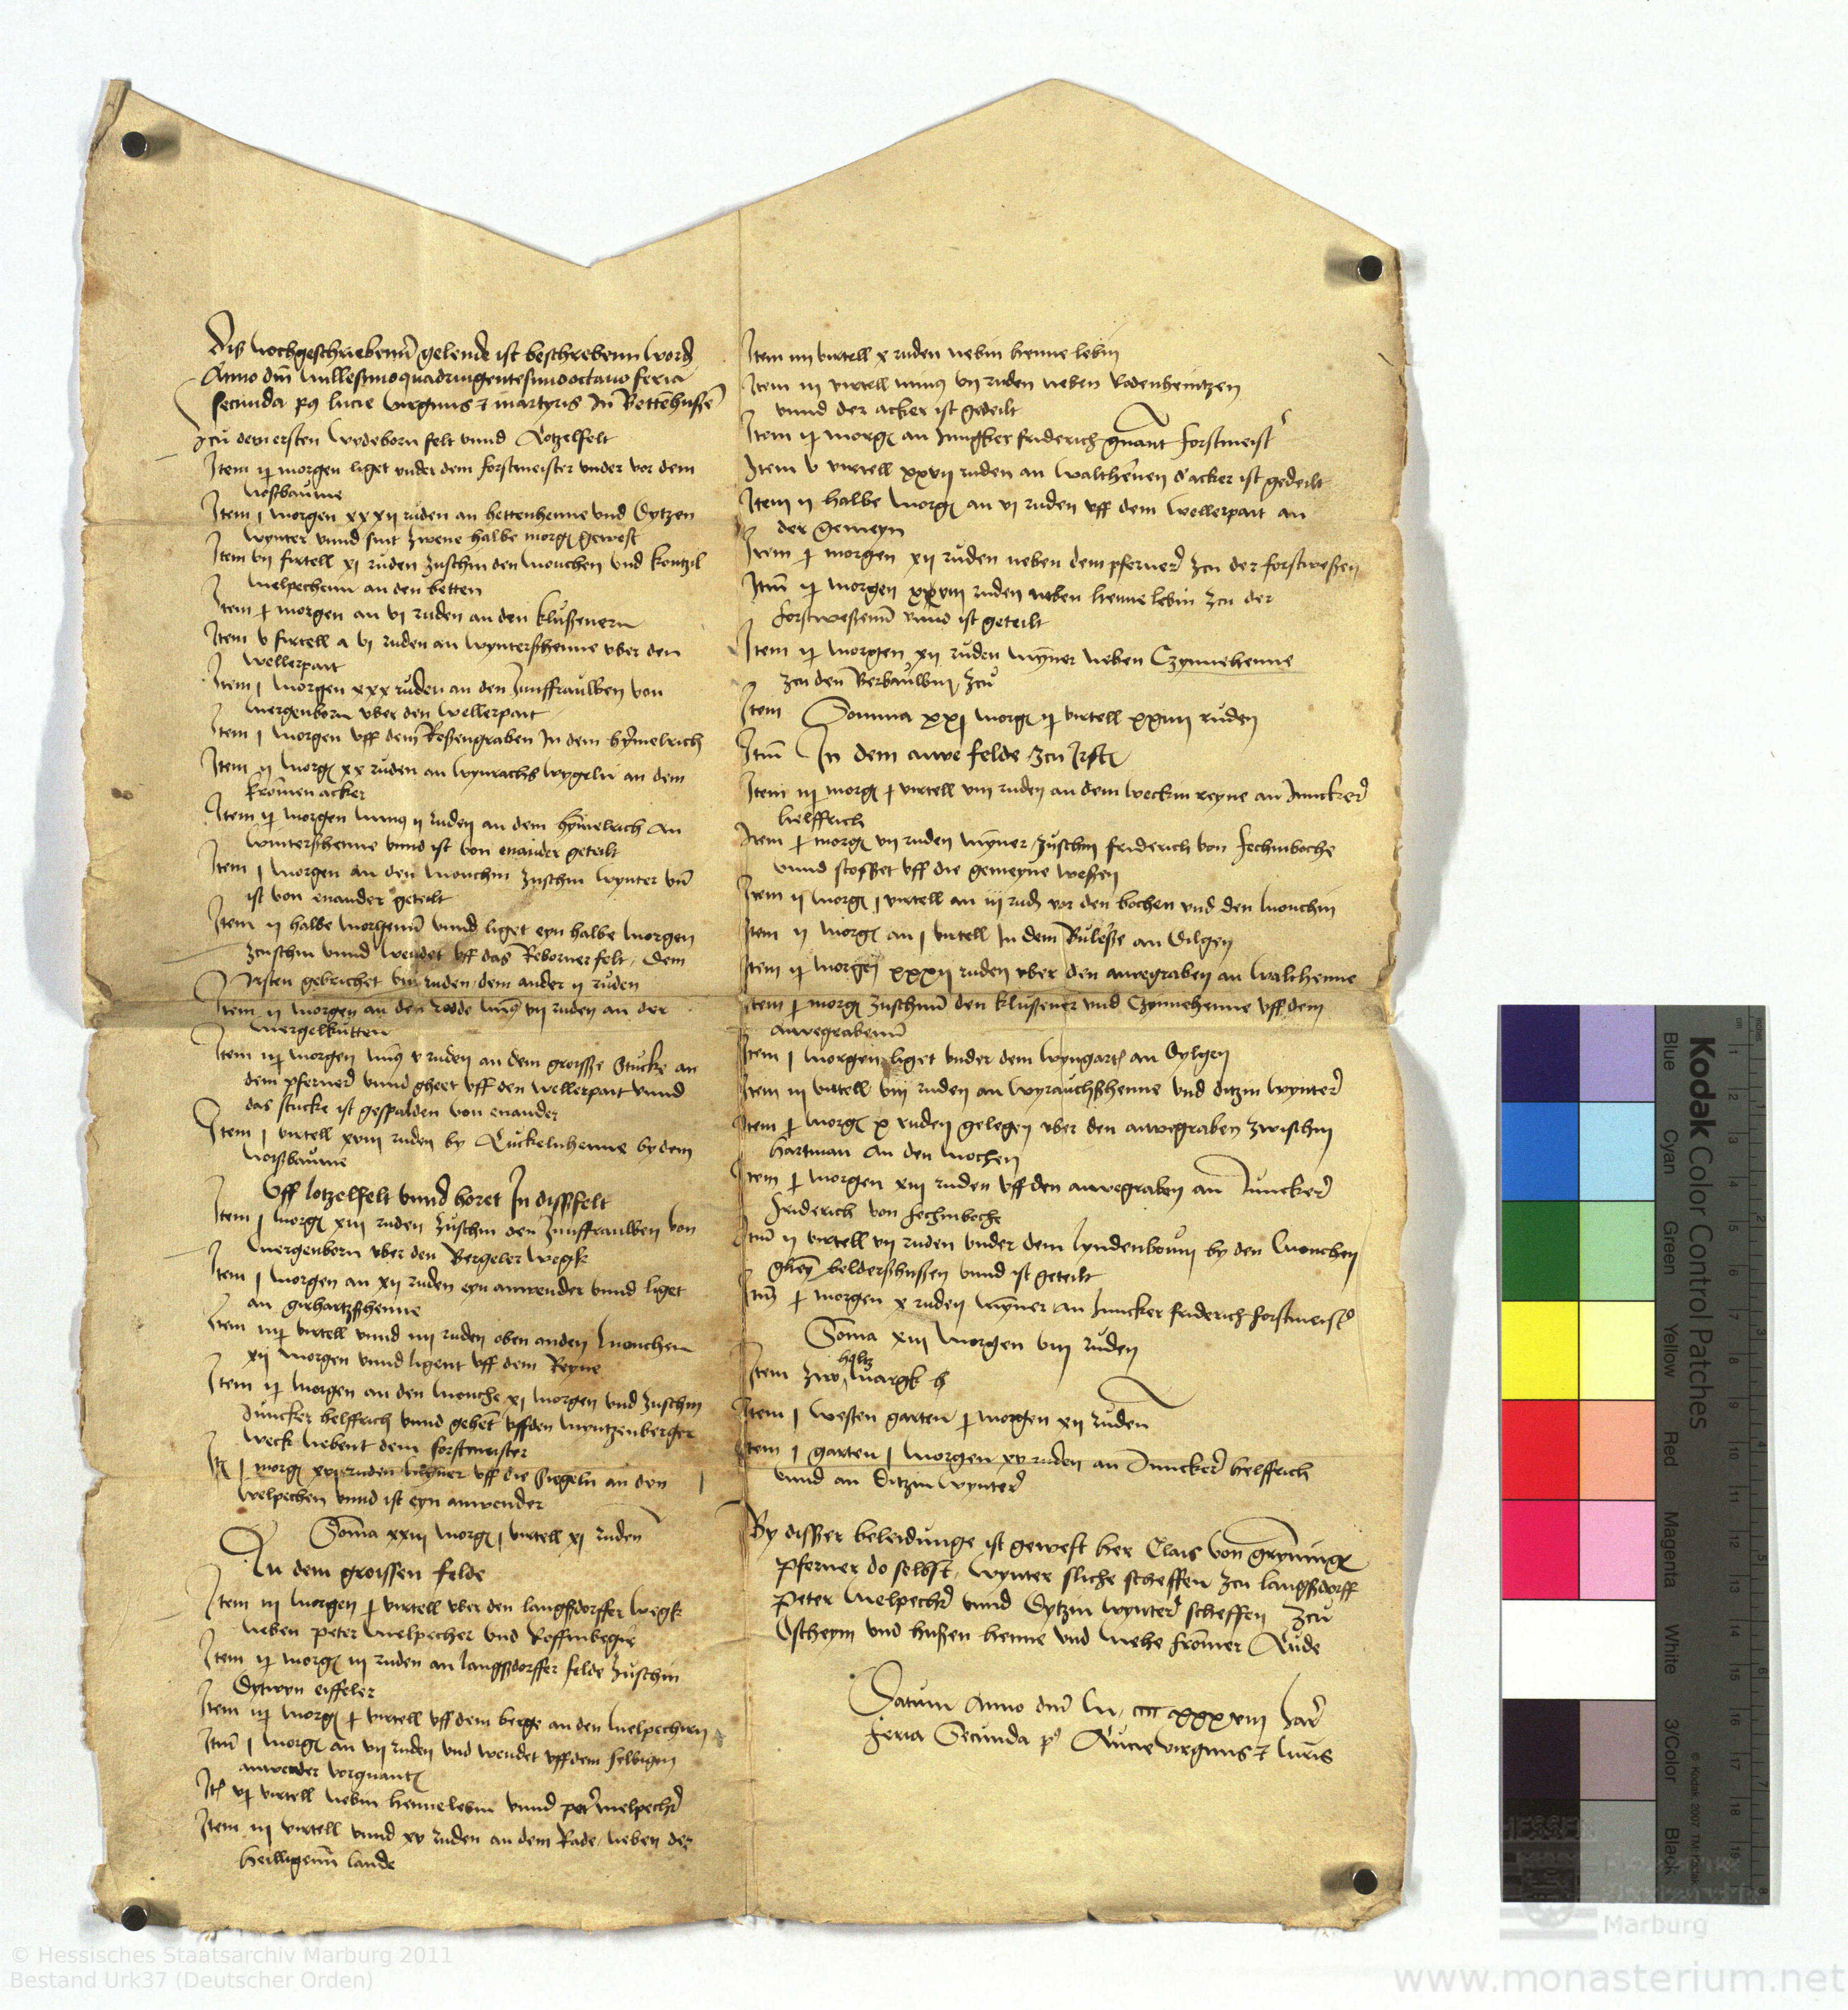 Dis nochgeschriebenn gelende ist beschrebenn word
Anno dm millesimoquadringentesimooctavo feria
secunda p9 lucie virginis & martyris In Bettenhusße
zcu dem ersten wydeborn felt vnnd Lotzelfelt
Item ij morgen liget vnder dem forstmeister vnder vor dem
nosbaume
Item j morgen xxxij ruden an hettenhenne vnd Dytzen
wynter vnnd sint zwene halbe morg gewest
Item vij firtell xj ruden zuschin den monchen vnd kontzil
welpechenn an den betten
Item morgen an vj ruden an den klußenern
Item v firtell a vj ruden an wynterßhenne vber den
wellerpait
Item j morgen xxx ruden an den Junffrauwen von
mergenborn vber den wellerpait
Item j morgen vff dem Roßengraben In dem hymelrich
Item ij morg xx ruden an wyrachs wygeln an dem
kromen acker
Item morgen min9 ij ruden an dem hymelrich an
winterßhenne vnnd ist von enander geteilt
Item j morgen an den monchin zuschin wynter vn
ist von enander geteilt
Item ij halbe morgenn vnnd liget eyn halbe morgen
zcuschin vnnd wendet vff das Reborner felt, dem
irsten gebrichet viij ruden dem ander ij ruden
Item ij morgen an den rodde min9 vij ruden an der
mergelkutten
Item morgen min9 v ruden an dem groisße stucke an
dem pferner vnnd gheet vff den wellerpait vnnd
das stucke ist gespalden von enander
Item j virtell xviij ruden by Luckelnhenne by dem
norßbaume
Vff lotzelfelt vnnd horet In dißfelt
Item j morg xiij ruden zuschin den Junffrauwen von
mergenborn vber den Bergeler wegk
Item j morgen an xij ruden eyn anwender vnnd liget
an girhartzßhenne
Item virtell vnnd iiij ruden oben anden monchen
xij morgen vnnd ligent vff dem Reyne
Item morgen an den monche xj morgen vnd zuschin
Juncker helffrich vnnd gehet vffden myntzenberger
weck nebent dem forstmeister
It j morg xvj ruden wyner vff die Ziegeln an den
welpechen vnnd ist eyn anwender
Soma xxiij morg j virtell xj ruden
In dem groissen felde
Item iij morgen virtell vber den langßdorffer wegk
neben peter welpecher vnd
Item morg iij ruden an langßdorffer felde zuschin
Dytwyn eiffeler
Item morg virtell vff dem berge an den welpechirn
Itm j morg an vij ruden vnd wendet vff dem selbigen
anwender vorgnant
It virtell nebin hennelebin vnnd peter welpecher
Item iij virtell vnnd xv ruden an dem Rade, neben der
heilligenn lande
Item iiij virtell x ruden nebin henne lebin
Item iij virtell min9 vij ruden neben Rodenheintzen
vnnd der acker ist gedeilt
Item morg an Jungker friderich gnant forstmeist
Item v virtell xxvij ruden an walthenen d acker ist gedeilt
Item ij halbe morg an vj ruden vff dem wellerpait an
der gemeyn
Item morgen xij ruden neben dem pferner zcu der forstweßen
Itm morgen xxviij ruden neben henne lebin zcu der
forstweßenn vnnd ist geteilt
Item morgen xij ruden myner neben Czynnehenne
zcu den Berbaulwin zcu
Item Somma xxj morg virtell xxiiij ruden
Itm In dem auwe felde zcu Irst
Item morg virtell viij ruden an dem weckin reyne an Juncker
helffrich
Item morg vij ruden myner, zuschin friderich von fechinbache
vnnd stosßet vff die gemeyne weßen
Item ij morg j virtell an iij rud vor den bochen vnd den monchin
Item ij morg an j virtell In dem Buleße an Dilgen
Item morgen xxxij ruden vber den auwegraben an walthenne
Item morg zuschinn den klußener vnd Czynnehenne vff dem
auwegrabenn
Item j morgen liget vnder dem wyngart an Dylgen
Item iij virtell viij ruden an wyrauchßhenne vnd ditzin wynter
Item morg x ruden gelegen vber den auwegraben zwischin
hartman an den mochen
Item morgen xiij ruden vff den auwegraben an Juncker
friderich von fechinbache
Itm ij virtell vij ruden vnder dem lyndenboum by den monchen
ghen belderßhußen vnnd ist geteilt
Itm morgen x ruden myner an Juncker friderich forstmeist
Soma xiij morgen viij ruden
Item zwo holtz margk
Item j westen garten morgen xij ruden
Item j garten j morgen xv ruden an Juncker helffrich
vnnd an Ditzin wynter
By disßer beleidunge ist gewest her Clais von grynning
pferner do selbst, wynter sliche scheffen zcu langßdorff
peter welpecher vnnd Dytzin wynter scheffen zcu
Ostheym vnd hußen henne vnd wehe fromer Lude
Datum Anno dm M cccc xxxviij Jar
feria Secunda p9 Lucie virginis & mris
© Hessisches Staatsarchiv Marburg 2011
Bestand Urk37 (Deutscher Orden)
Kodak Color Control Patches
Blue Cyan Green Yellow Red Magenta White 3/Color Black
© Kodak, 2007 TM: Kodak
Marburg
www.monasterium.net